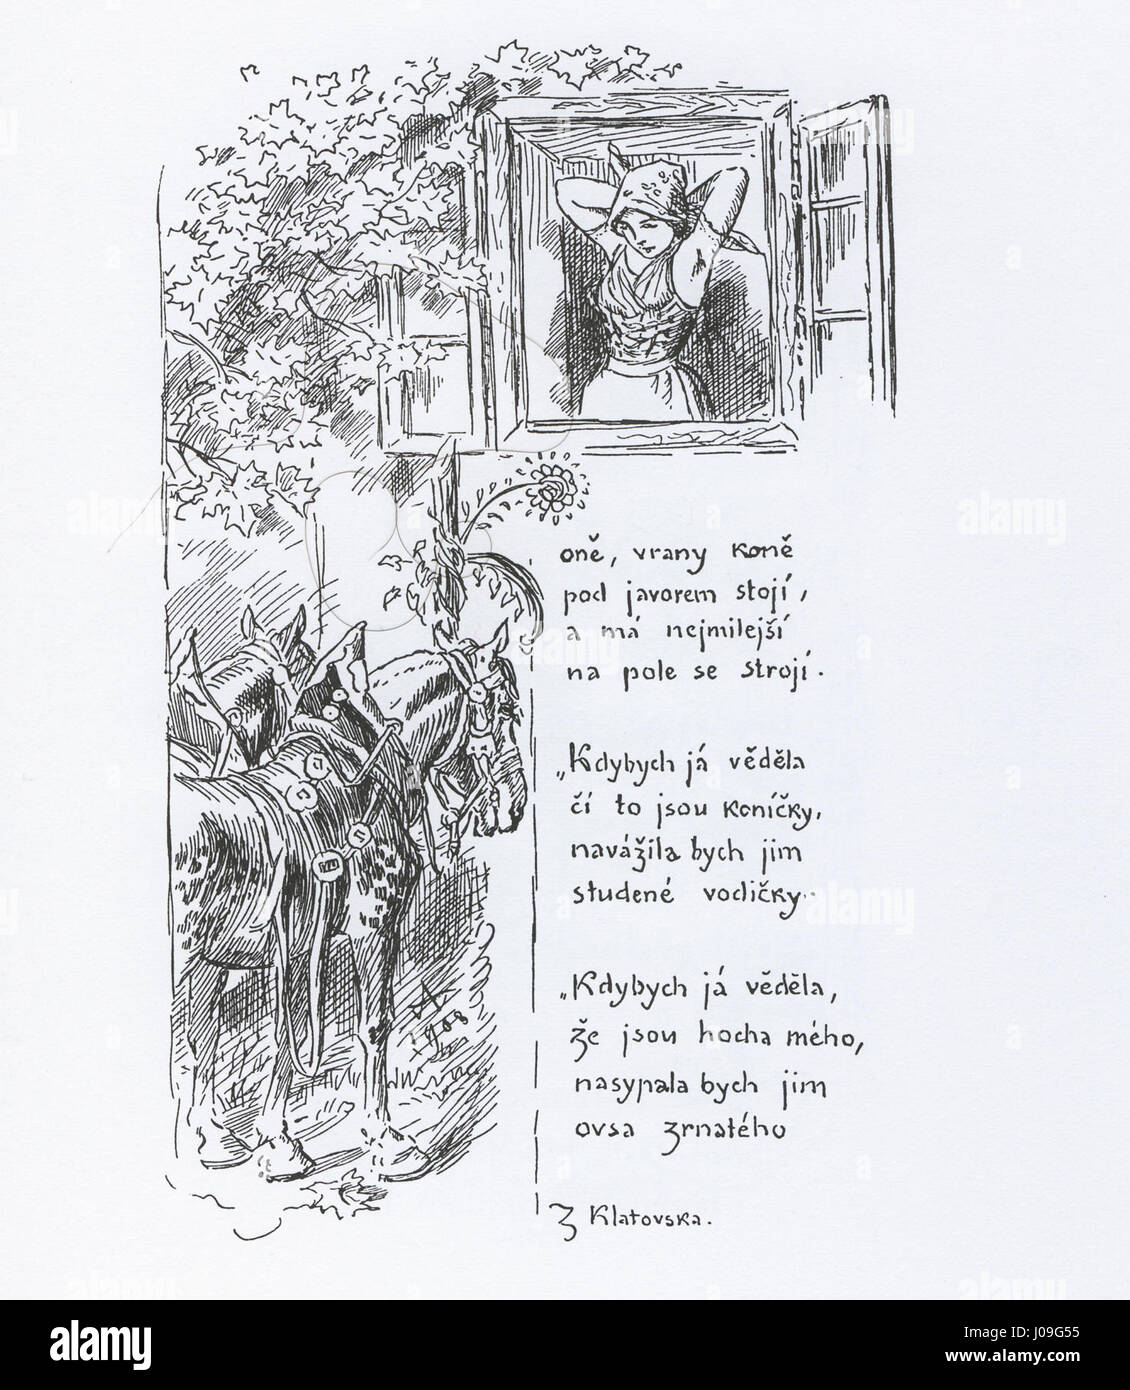 oně, vrany koně
pod javorem stojí,
a má nejmilejší
na pole se strojí.
„Kdybych já věděla
čí to jsou koníčky,
navážila bych jim
studené vodičky.
„Kdybych já věděla,
že jsou hocha mého,
nasypala bych jim
ovsa zrnatého
Z Klatovska.
1908
alamy
alamy
Image ID: J09G55
www.alamy.com